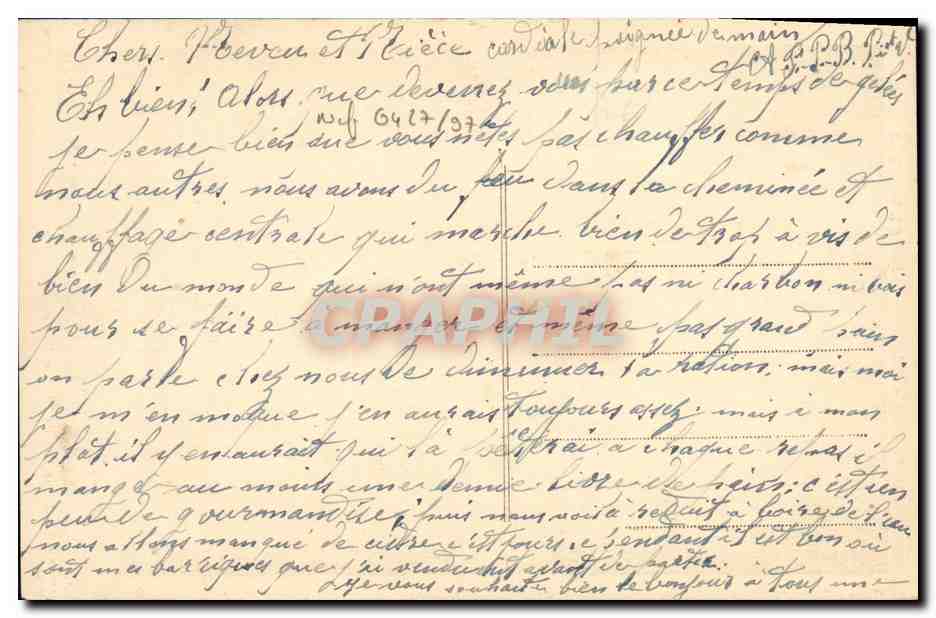 Chers Neveu et Nièce cordiale poignée de main
Eh bien! Alors que devenez vous par ce temps de gelées
Nef 0427/97
je pense bien que vous n'êtes pas chauffer comme
nous autres, nous avons du feu dans la cheminée et
chauffage centrale qui marche bien de trop à vis de
bien du monde qui n'ont même pas ni charbon ni bois
CPAPHIL
pour se faire à manger et même pas grand pain
on parle chez nous de diminuer la ration, mais moi
je m'en moque j'en aurais toujours assez. mais à mon
plat il y en aurait qui la à chaque repas il
mange au moins une demie livre de pain: c'est un
peu de gourmandise, puis nous voilà reduit à boire de l'eau
nous allons manque de cidre c'est pour cependant il est bon où
sont mes bariques que j'ai vendu avant de partir.
je vous souhaite bien le bonjour à tous une